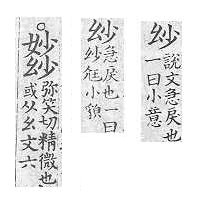 說文急戾也
一曰小意
急戾也一曰
小
妙
弥笑切精微也
或从幺文六